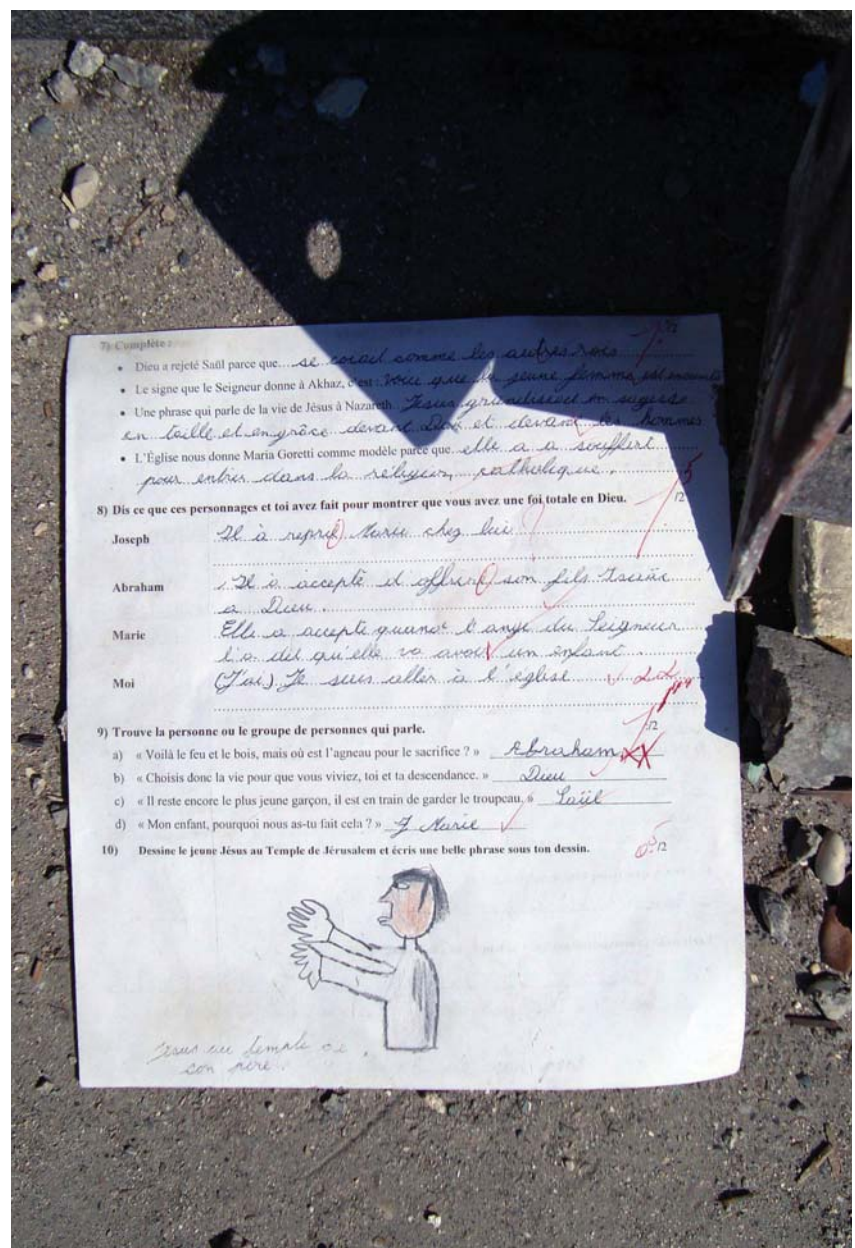 7) Complète :
/2
• Dieu a rejeté Saül parce que se corait comme les autres rois
• Le signe que le Seigneur donne à Akhaz, c'est : Voici que la jeune femme est enceinte
• Une phrase qui parle de la vie de Jésus à Nazareth. Jesus grandissait en sagesse
en taille et en grâce devant Dieu et devant les hommes
• L'Église nous donne Maria Goretti comme modèle parce que elle a a souffert
pour entrer dans la religion catholique.
8) Dis ce que ces personnages et toi avez fait pour montrer que vous avez une foi totale en Dieu.
/2
Joseph Il à repris Marie chez lui
Abraham Il a accepté d'offrire son fils
a Dieu.
Marie Elle a accepte quand l'ange du Seigneur
l'a dit qu'elle va avoir un enfant.
Moi (J'ai) Je suis aller à l'église
9) Trouve la personne ou le groupe de personnes qui parle.
/2
a) « Voilà le feu et le bois, mais où est l'agneau pour le sacrifice ? » Abraham
b) « Choisis donc la vie pour que vous viviez, toi et ta descendance. » Dieu
c) « Il reste encore le plus jeune garçon, il est en train de garder le troupeau. » Saül
d) « Mon enfant, pourquoi nous as-tu fait cela ? » Marie
10) Dessine le jeune Jésus au Temple de Jérusalem et écris une belle phrase sous ton dessin.
/2
Jesus au temple de
son père